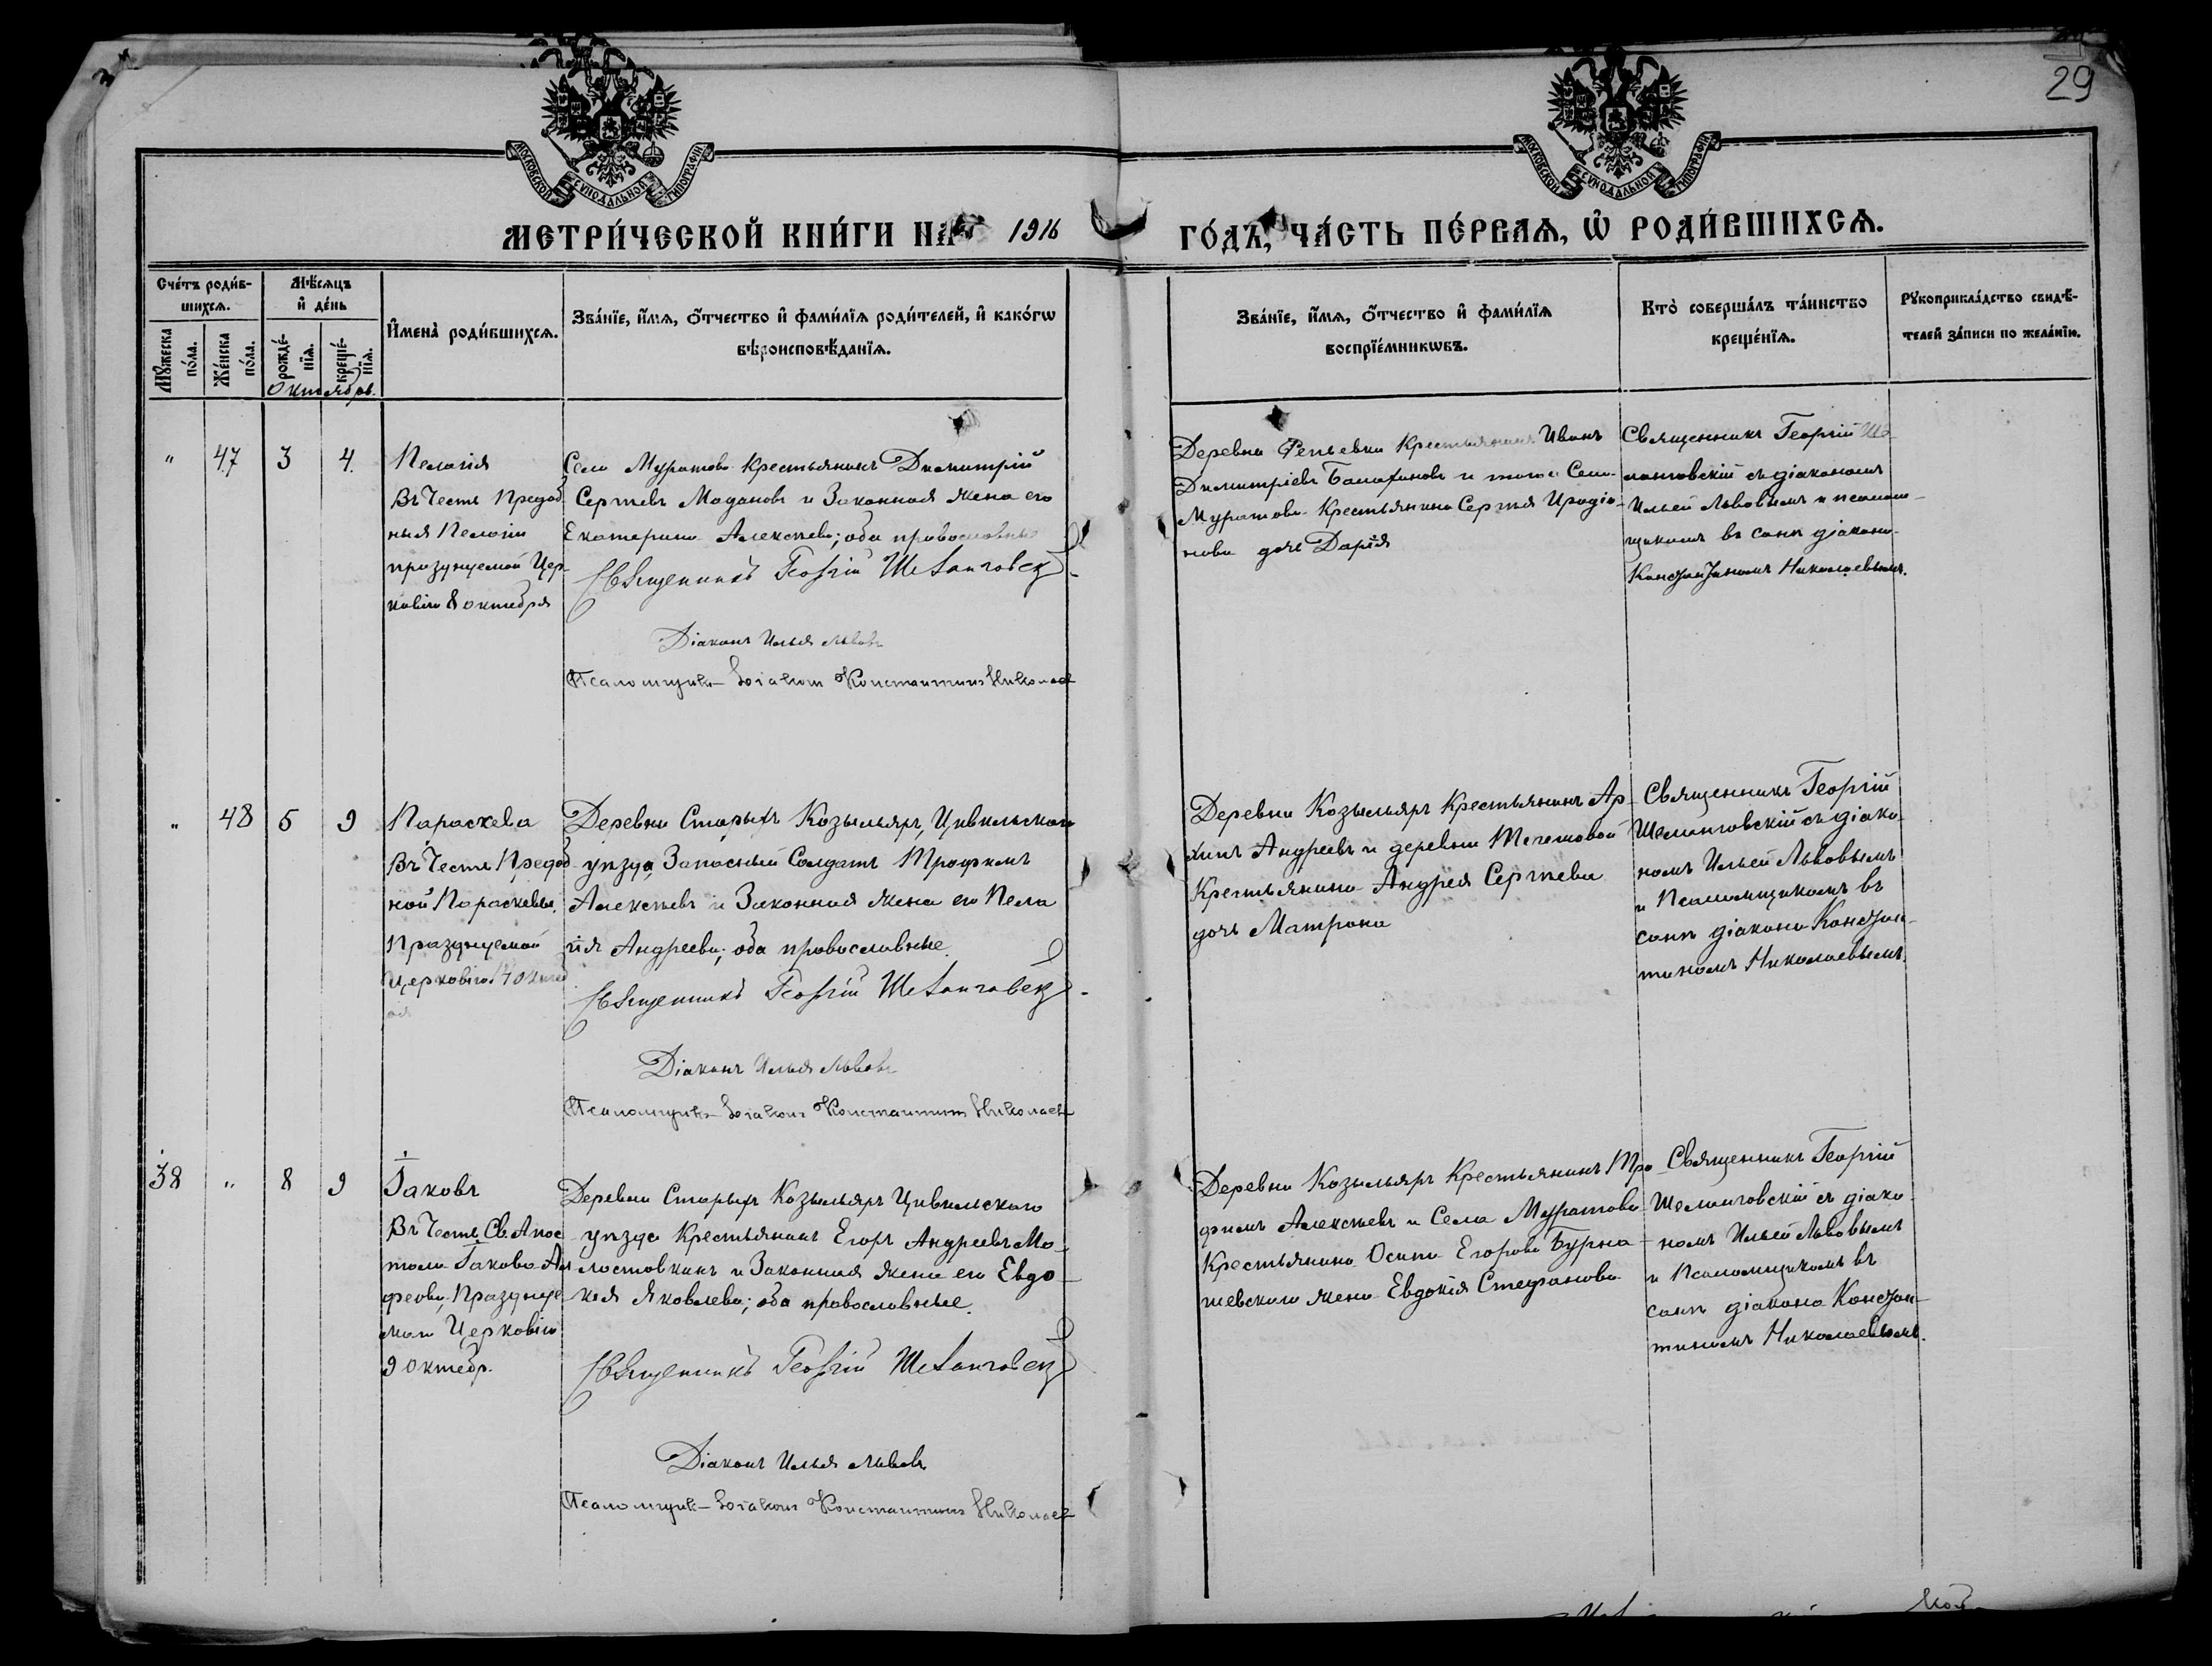 29
МОСКОВСКОЙ СѴНОДАЛЬНОЙ ТИПОГРАФІИ
МОСКОВСКОЙ СѴНОДАЛЬНОЙ ТИПОГРАФІИ
МЕТРИ́ЧЕСКОЙ КНИ́ГИ НА 1916 ГО́ДЪ, ЧА́СТЬ ПЕ́РВАѦ, Ѡ҆ РОДИ́ВШИХСѦ.
Сче́тъ роди́в-
шихсѧ.
Мꙋ́жеска
по́ла.
Же́нска
по́ла.
Мѣ́сѧцъ
и҆ де́нь
рожде́-
нїѧ.
креще́-
нїѧ.
Октябрь.
И҆мена̀ роди́вшихсѧ.
Зва́нїе, и҆́мѧ, ѻ҆́тчество и҆ фами́лїѧ роди́телей, и҆ како́гѡ
вѣроисповѣ́данїѧ.
Зва́нїе, и҆́мѧ, ѻ҆́тчество и҆ фами́лїѧ
воспрїе́мникѡвъ.
Кто̀ соверша́лъ та́инство
креще́нїѧ.
Рꙋкоприкла́дство свидѣ́-
телей за́писи по жела́нїю.
" 47 3 4.
Пелагія
Въ Честь Препод
ныя Пелагіи
празднуемой Цер-
ковію 8 октября
Села Муратова Крестьянинъ Димитрій
Сергѣевъ Мадановъ и Законная жена его
Екатерина Алексѣева; оба православные
Священникъ Георгій Шеланговск
Діаконъ Илья Львовъ
Псаломщикъ - Діаконъ Константинъ Николаев
Деревни Репьевки Крестьянинъ Иванъ
Димитріевъ и того Села
Муратова Крестьянина Сергія Иродіо-
нова дочь Дарія
Священникъ Георгій Ше-
ланговскій съ діакономъ
Ильей Львовымъ и псалом-
щикомъ въ санѣ діакона
Константиномъ Николаевымъ.
" 48 5 9
Параскева
Въ Честь Препод
ной Параскевы,
Празднуемой
Церковію 14 октяб
ря
Деревни Старыхъ Козыльяръ, Цивильскаго
уѣзда Запасный Солдатъ Трофимъ
Алексѣевъ и Законная жена его Пела
гія Андреева; оба православные.
Священникъ Георгій Шеланговск
Діаконъ Илья Львовъ
Псаломщикъ - Діаконъ Константинъ Николаев
Деревни Козыльяръ Крестьянинъ Ар-
хипъ Андреевъ и деревни
Крестьянина Андрея Сергѣева
дочь Матрона
Священникъ Георгій
Шеланговскій съ діако-
номъ Ильей Львовымъ
и Псаломщикомъ въ
санѣ діакона Констан-
тиномъ Николаевымъ.
38 " 8 9
Іаковъ
Въ Честь Св. Апос
тола Іакова Ал
феова, Празднуе
маго Церковію
9 Октябр.
Деревни Старыхъ Козыльяръ Цивильскаго
уѣзда Крестьянинъ Егоръ Андреевъ Мо-
лостовкинъ и Законная жена его Евдо-
кія Яковлева; оба православные.
Священникъ Георгій Шеланговск
Діаконъ Илья Львовъ
Псаломщикъ - Діаконъ Константинъ Николаев
Деревни Козыльяръ Крестьянинъ Тро
фимъ Алексѣевъ и Села Муратова
Крестьянина Осипа Егорова Бурна-
шевскаго жена Евдокія Стефанова
Священникъ Георгій
Шеланговскій съ діако-
номъ Ильей Львовымъ
и Псаломщикомъ въ
санѣ діакона Констан-
тиномъ Николаевымъ.